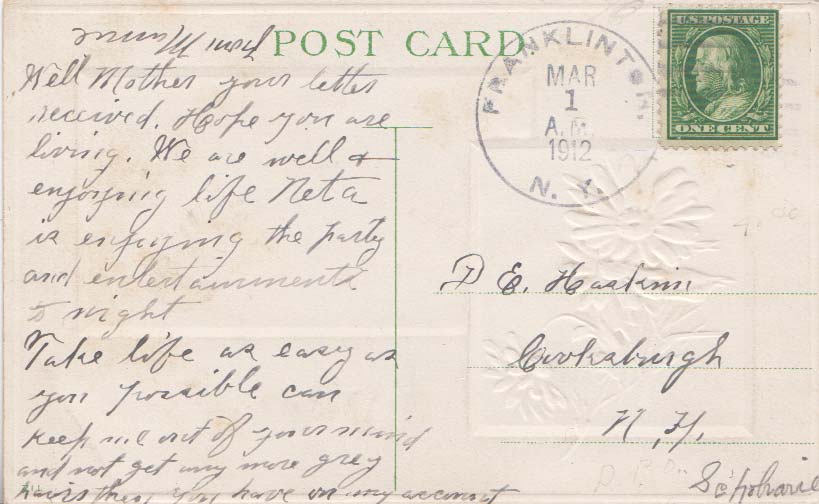 POST CARD
Well Mother your letter
received. Hope you are
living. We are well &
enjoying life Neta
is enjoying the party
and entertainments
to night
Take life as easy as
you possible can
keep me out of your mind
and not get any more grey
hairs than you have on my account
from
FRANKLINTON,
MAR
1
A.M.
1912
N. Y.
U.S. POSTAGE
ONE CENT
D E. Haskin
Cooksburgh
N. Y.
Schoharie